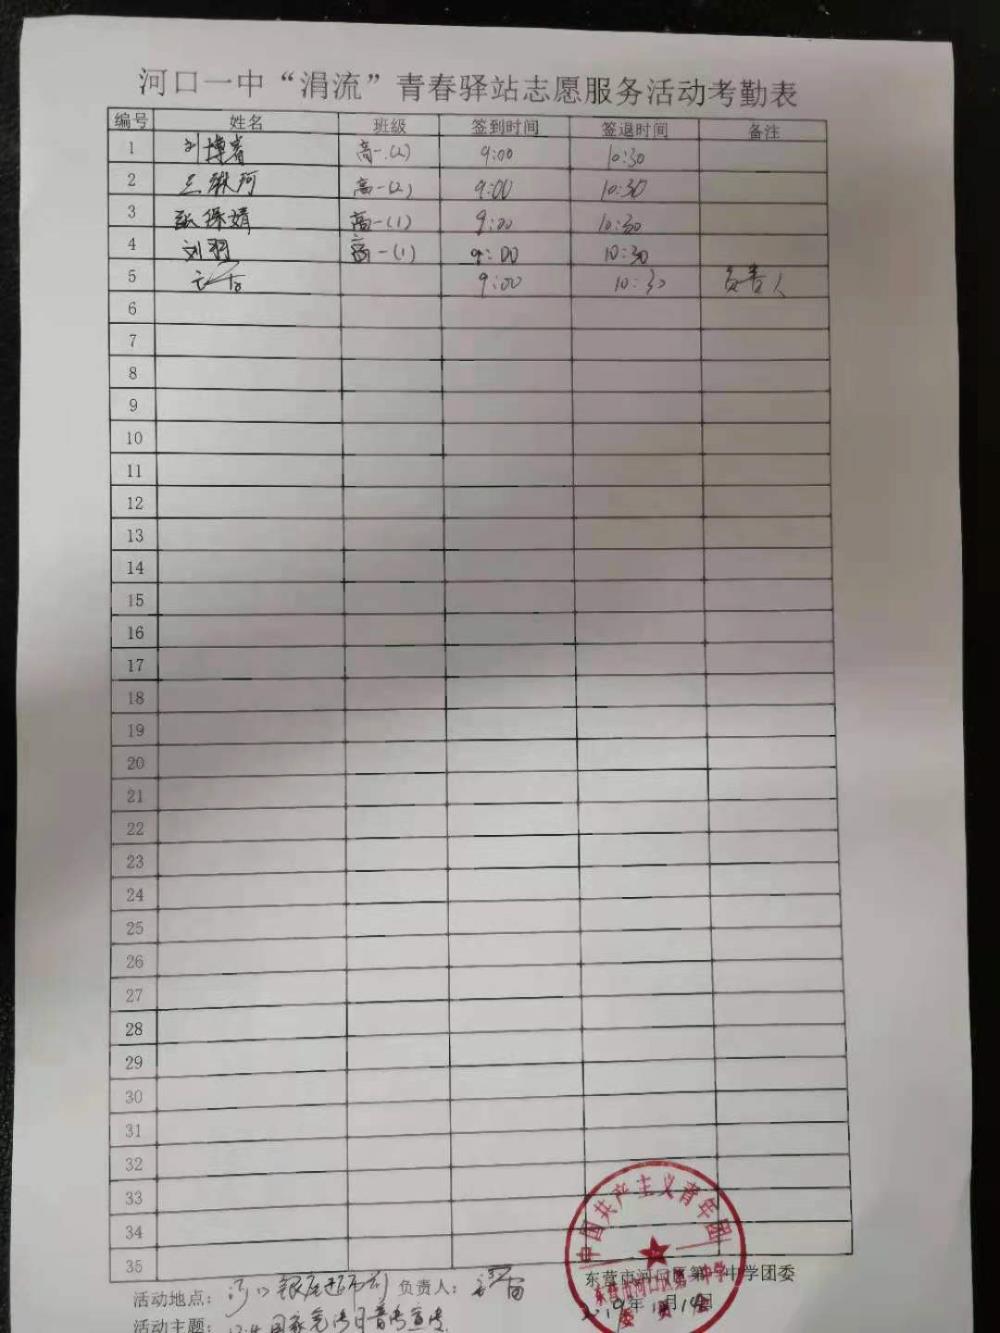 河口一中“涓流”青春驿站志愿服务活动考勤表
编号 姓名 班级 签到时间 签退时间 备注
1 刘博睿 高一.(2) 9:00 10:30
2 高一(2) 9:00 10:30
3 高一(1) 9:00 10:30
4 刘羽 高一(1) 9:00 10:30
5 9:00 10:30 负责人
6
7
8
9
10
11
12
13
14
15
16
17
18
19
20
21
22
23
24
25
26
27
28
29
30
31
32
33
34
35
中国共产主义青年团
东营市河口区第一中学
委员会
东营市河口区第一中学团委
活动地点：河口银座超市 负责人：
2019年 月 日
活动主题： 12.4国家宪法日普法宣传